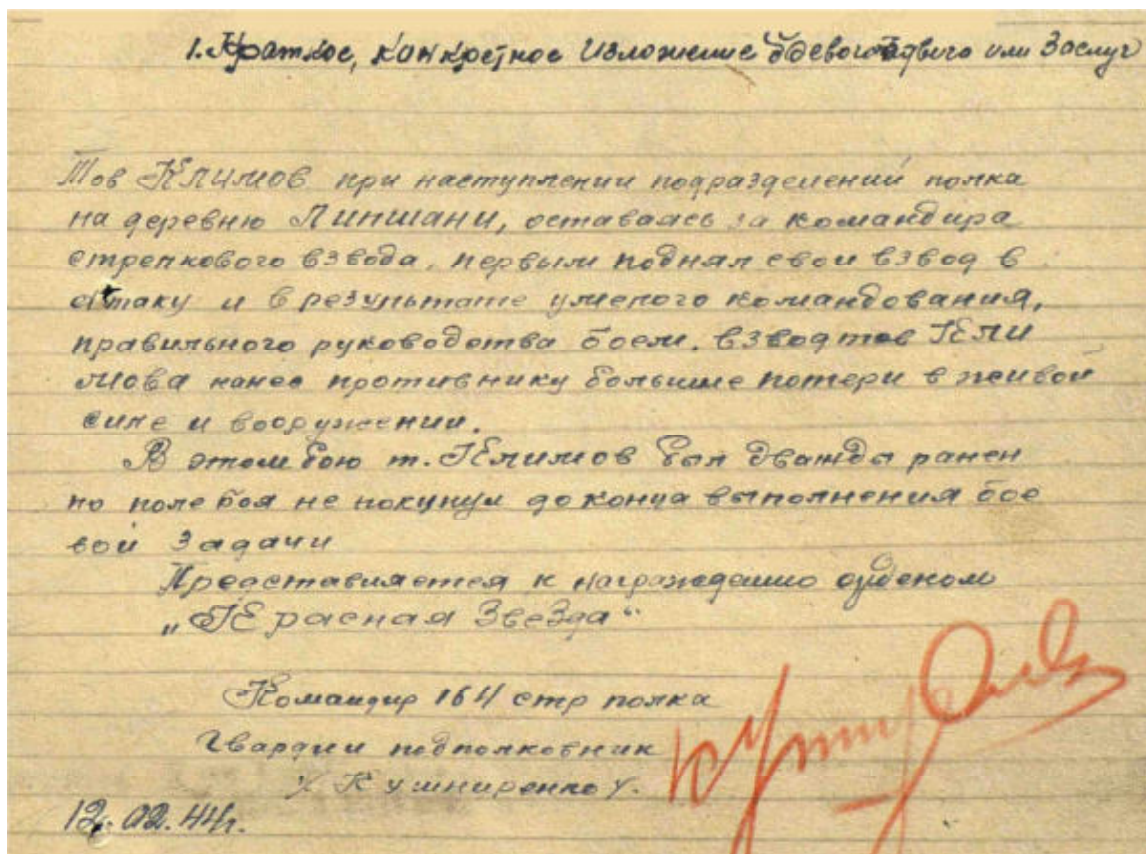 1. Краткое, конкретное изложение боевого подвига или заслуг
Тов Климов при наступлении подразделений полка
на деревню Липшани, оставаясь за командира
стрелкового взвода, первым поднял свой взвод в
атаку и в результате умелого командования,
правильного руководства боем. взвод тов Кли
мова нанес противнику большие потери в живой
силе и вооружении.
В этом бою т. Климов был дважды ранен
но поле боя не покунул до конца выполнения бое
вой задачи
Представляется к награждению орденом
„Красная Звезда“
Командир 164 стр полка
Гвардии подполковник
/Кушниренко/.
12. 02. 44г.